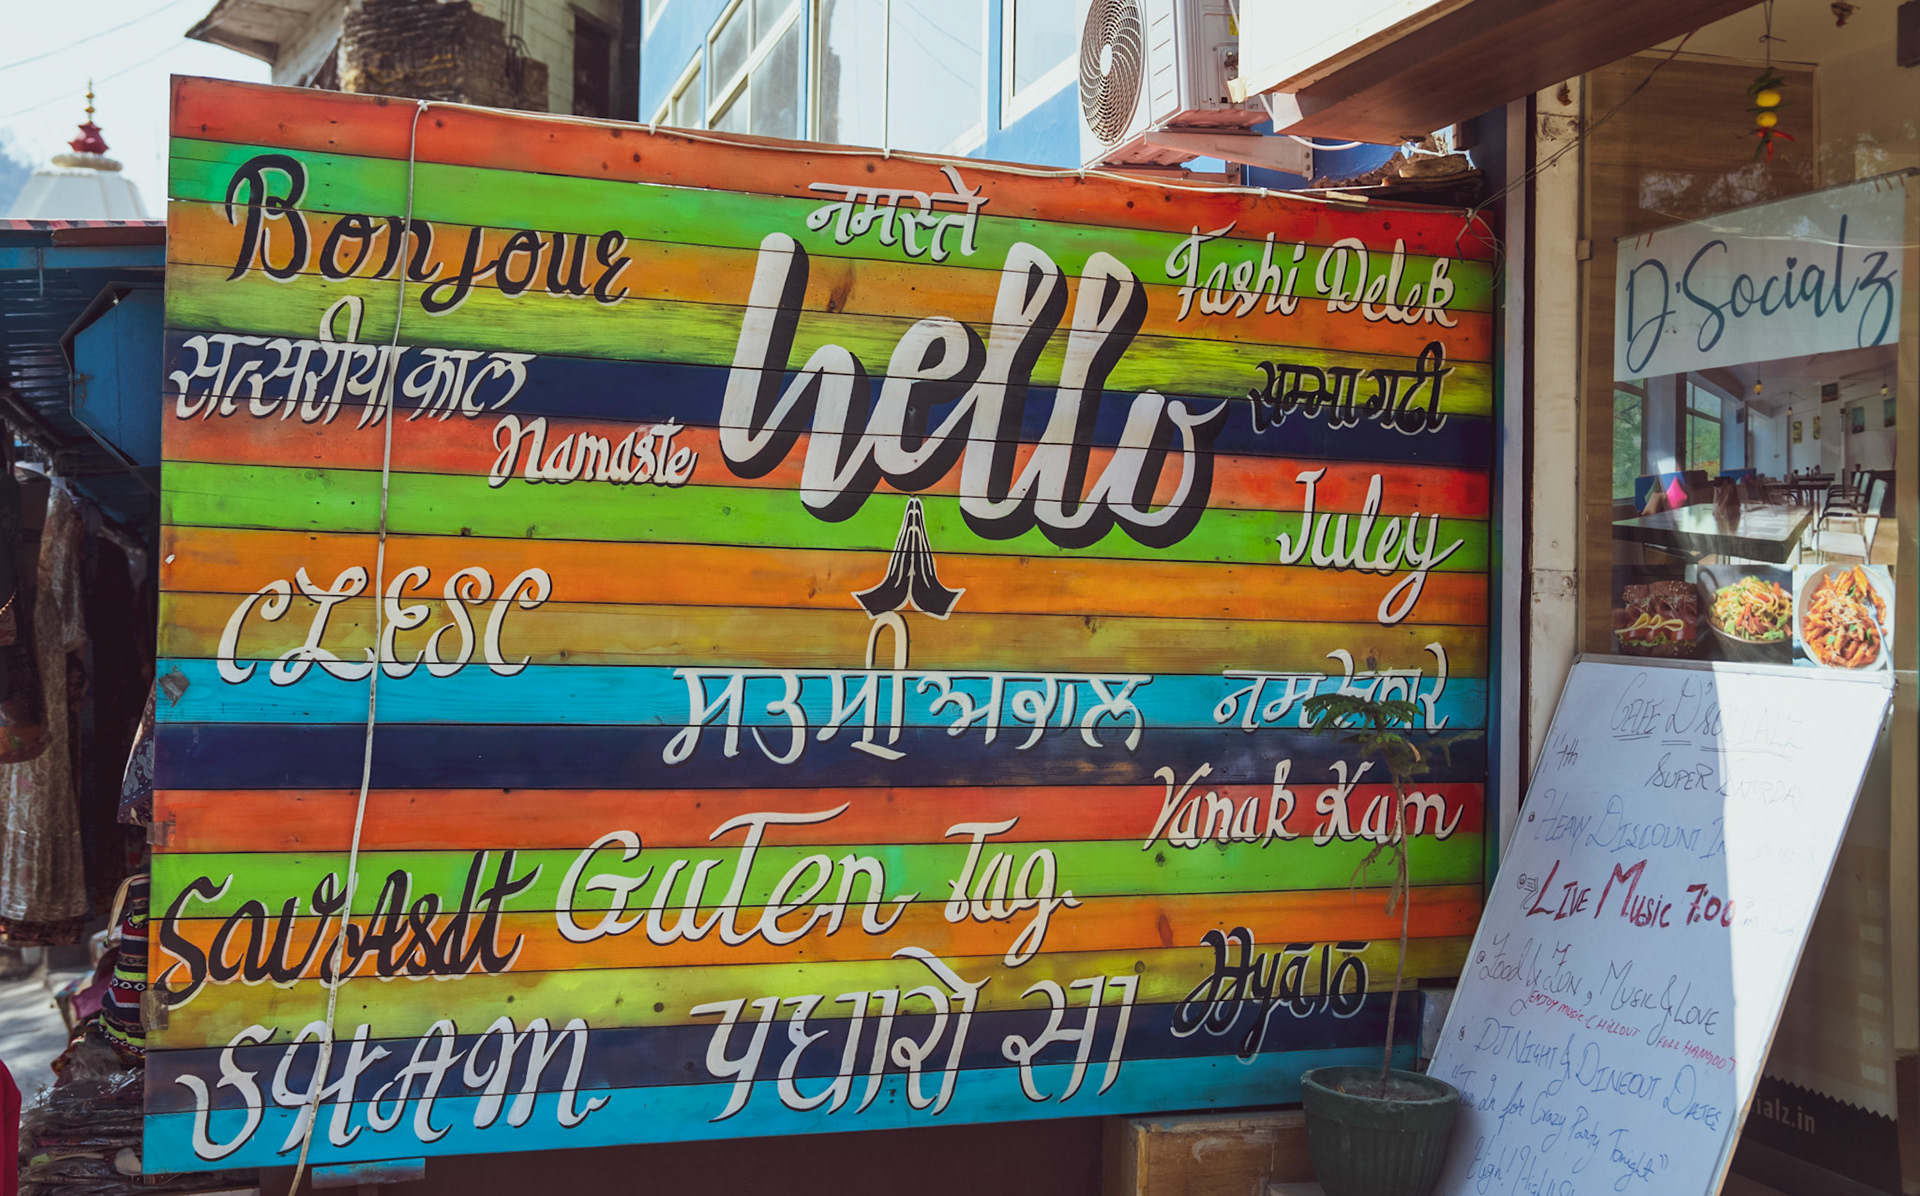 Bonjour
नमस्ते
Tashi Delek
hello
सत्सरीया काल
Namaste
Juley
CLESC
ਸਤਸ੍ਰੀਅਕਾਲ
नमस्कार
Vanak Kam
Guten Tag.
SawAsdt
Hyālō
पधारो सा
SALAAM.
D'Socialz
CAFE D'SOCIALZ
SUPER SATURDAY
HEAVY DISCOUNT IN
LIVE MUSIC 7:00
Food & Fun, Music & Love
ENJOY MUSIC CHILLOUT FULL HANGOUT
DJ NIGHT & DINEOUT DATES
for Crazy Party Tonight"
ialz.in